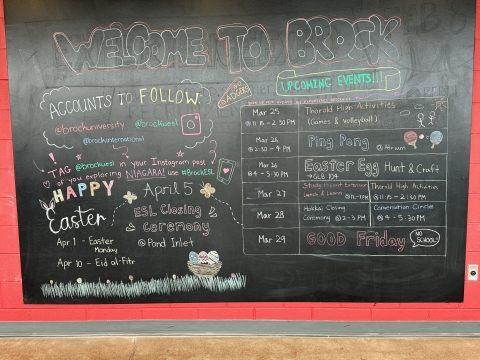 WELCOME TO BROCK
ACCOUNTS TO FOLLOW
@brockuniversity @brockesl
@brockinternational
BADGERS
TAG @brockesl in your Instagram post
of you exploring NIAGARA! use #BrockESL
HAPPY
Easter
Apr 1 - Easter
Monday
Apr 10 - Eid al-Fitr
April 5
ESL Closing
Ceremony
@Pond Inlet
UPCOMING EVENTS!!!
Mar 25
@ 11:15 - 2:30 PM
Thorold High Activities
(Games & volleyball)
Mar 26
@ 2:30 - 4 PM
Ping Pong @ Atrium
Mar 26
@ 4 - 5:30 PM
Easter Egg Hunt & Craft
→ GLB 104
Mar 27
Lunch & Learn @ 12-1 PM
Thorold High Activities
@ 11:15 - 2:30 PM
Mar 28
Closing
Ceremony @ 2-3 PM
Conversation Circles
@ 4 - 5:30 PM
Mar 29
GOOD Friday
NO
SCHOOL!